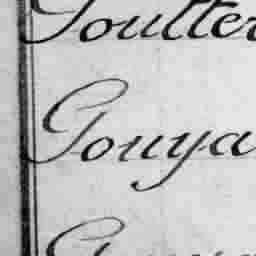 Goulter
Gouya